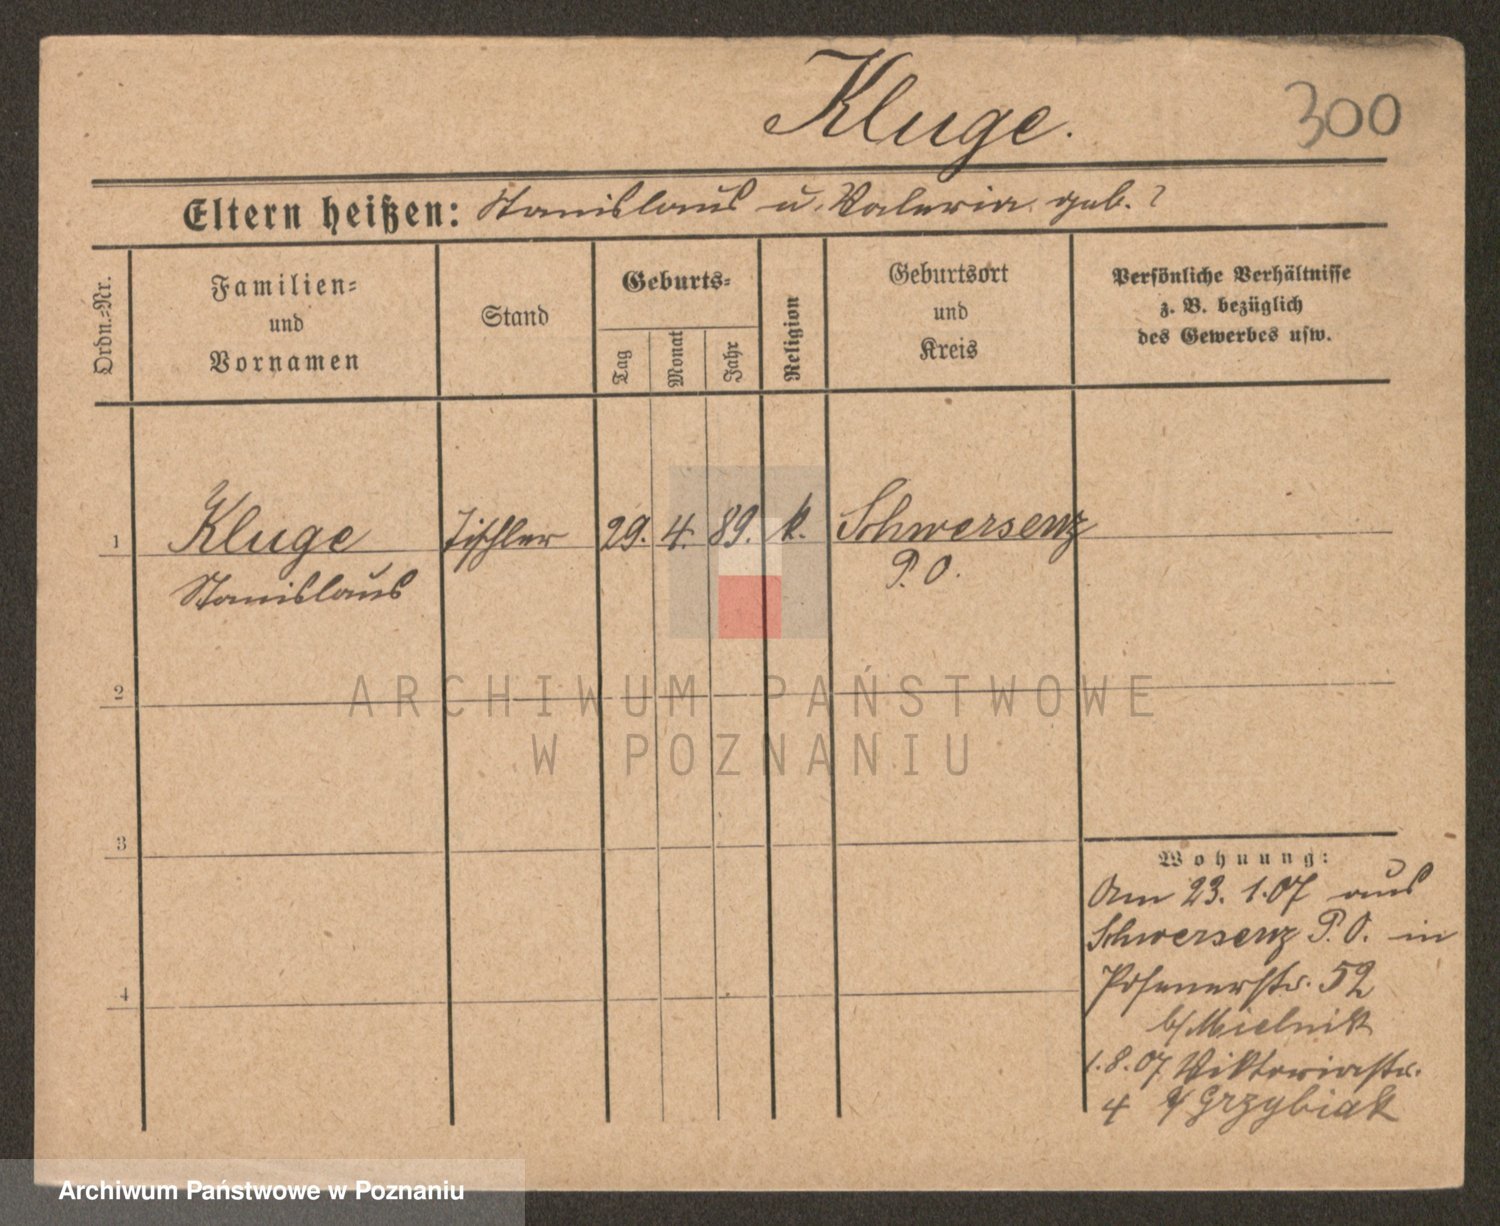 Kluge. 300
Eltern heißen: Stanislaus u. Valeria geb. ?
Ordn.-Nr.
Familien-
und
Vornamen
Stand
Geburts-
Tag
Monat
Jahr
Religion
Geburtsort
und
Kreis
Persönliche Verhältnisse
z. B. bezüglich
des Gewerbes usw.
1 Kluge Tischler 29. 4. 89. k. Schwersenz
Stanislaus P. O.
2
3
4
Wohnung:
Am 23. 1. 07 aus
Schwersenz P. O. in
Posenerstr. 52
b/Mielnik
1. 8. 07 Viktoriastr.
4 b/Grzybiak
ARCHIWUM PAŃSTWOWE
W POZNANIU
Archiwum Państwowe w Poznaniu